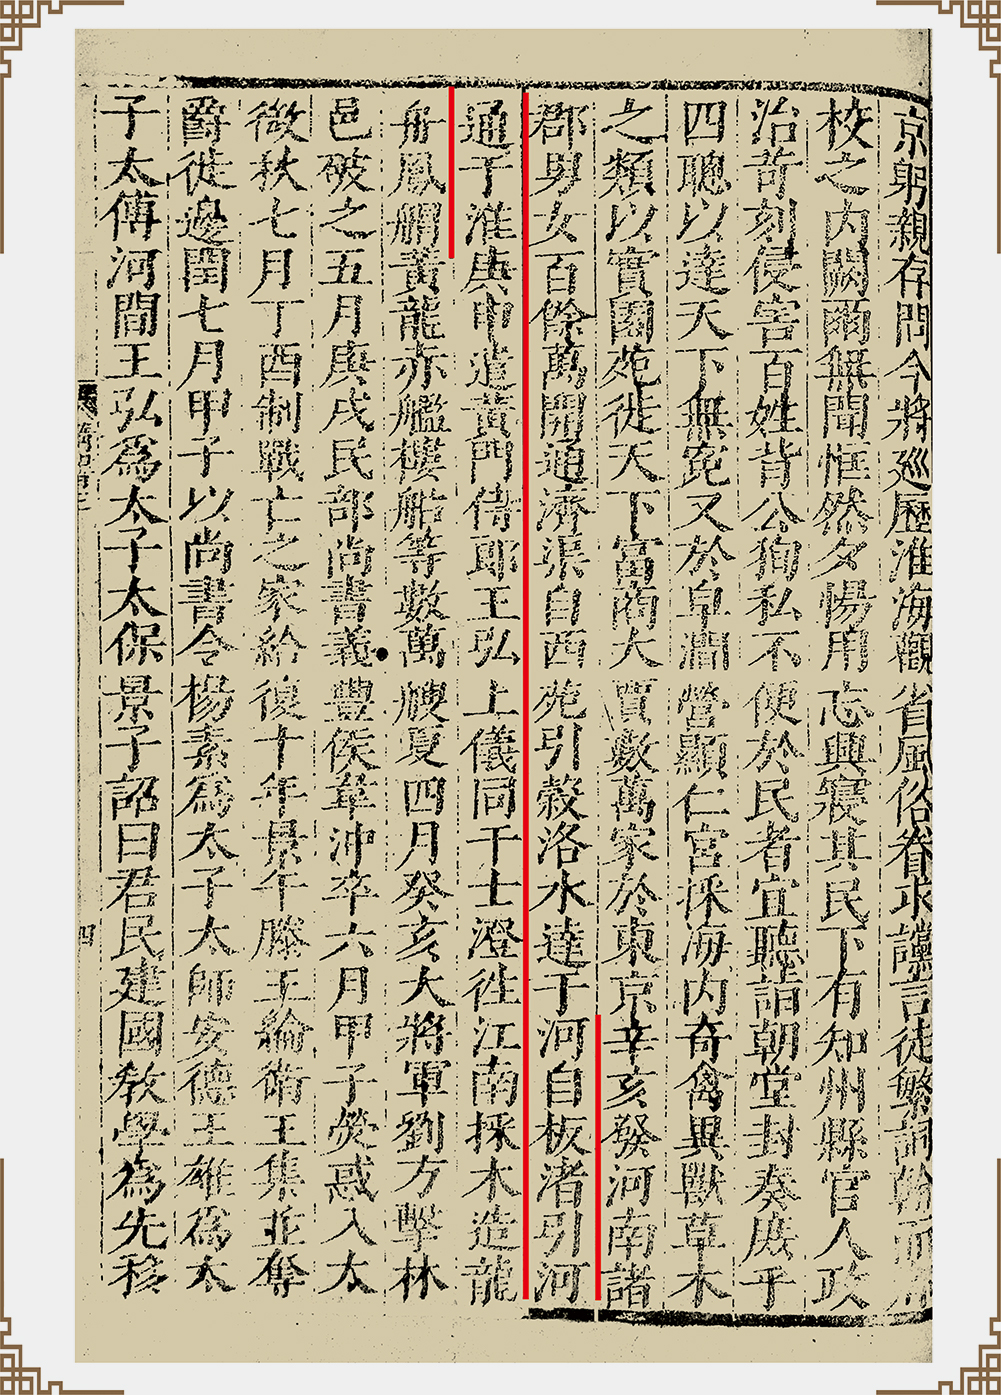 京躬親存問今將巡歷淮海觀省風俗眷求讜言徒繁詞翰而
校之內闕爾無聞恇然夕惕用忘興寢其民下有知州縣官人政
治苛刻侵害百姓背公徇私不便於民者宜聽詣朝堂封奏庶乎
四聰以達天下無寃又於皁澗營顯仁宮採海內奇禽異獸草木
之類以實園苑徙天下富商大賈數萬家於東京辛亥發河南諸
郡男女百餘萬開通濟渠自西苑引穀洛水達于河自板渚引河
通于淮庚申遣黃門侍郎王弘上儀同于士澄往江南採木造龍
舟鳳䑽黃龍赤艦樓船等數萬艘夏四月癸亥大將軍劉方擊林
邑破之五月庚戌民部尚書義豐侯韋沖卒六月甲子熒惑入太
微秋七月丁酉制戰亡之家給復十年景午滕王綸衛王集並奪
爵徙邊閏七月甲子以尚書令楊素為太子太師安德王雄為太
子太傅河間王弘為太子太保景子詔曰君民建國教學為先移
四